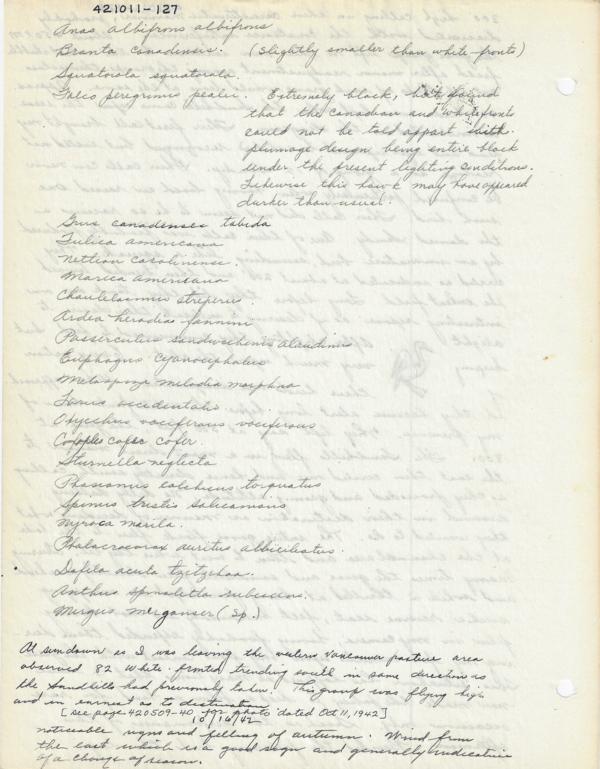 421011-127
Anas albifrons albifrons
Branta canadensis. (Slightly smaller than white fronts)
Squatarola squatarola.
Falco peregrinus pealei. Extremely black, but found
that the Canadian and whitefronts
could not be told appart with
plumage design being entire black
under the present lighting conditions.
Likewise this hawk may have appeared
darker than usual.
Grus canadenses tabida
Fulica americana
Nettion carolinense.
Mareca americana
Chaulelasmus streperus.
Ardea herodias fannini
Passerculus sandwichensis alaudinus
Euphagus cyanocephalus
Melospiza melodia morphna
Larus occidentalis
Oxyechus vociferous vociferous
Colaptes cafer cafer.
Sturnella neglecta
Phasianus colchicus torquatus
Spinus tristis salicamans
Nyroca marila.
Phalacrocorax auritus albiciliatus.
Dafila acuta tzitzihoa.
Anthus spinoletta rubescens.
Mergus merganser (Sp.)
At sundown as I was leaving the western Vancouver pasture area
observed 82 White-fronted trending south in same direction as
the Sandhills had previously taken. This group was flying high
and in earnest as to destination
[see page 420509-40 for photo dated Oct 11, 1942]
10/16/42
noticeable signs and felling of autumn. Wind from
the east which is a good sign and generally indicative
of a change of season.